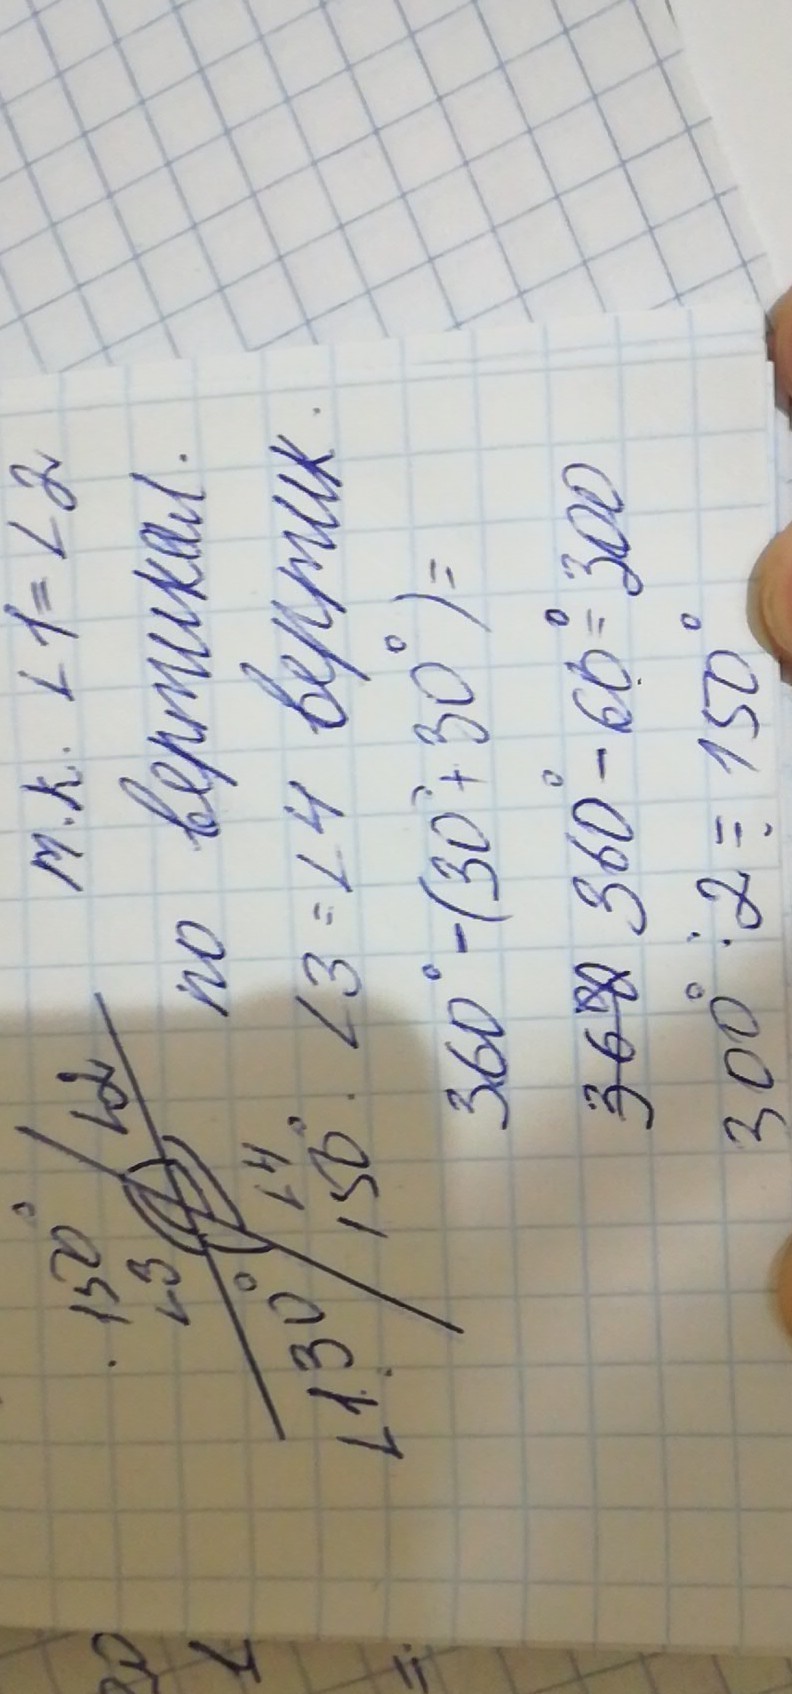 150°
∠3
∠2
∠1. 30°
∠4
150°.
т.к. ∠1=∠2
по вертикал.
∠3=∠4 вертик.
360°-(30°+30°)=
360°-60°=300
300°:2=150°